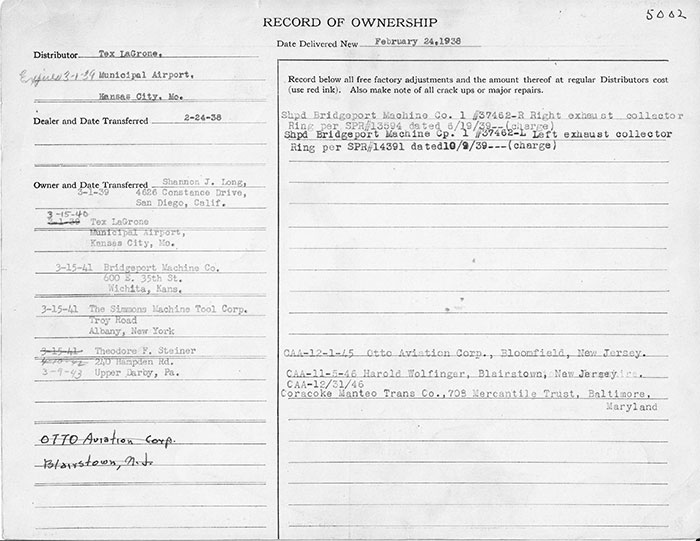 5002
RECORD OF OWNERSHIP
Date Delivered New February 24,1938
Distributor Tex LaGrone,
Expires 3-1-39 Municipal Airport,
Kansas City, Mo.
Dealer and Date Transferred 2-24-38
Owner and Date Transferred Shannon J. Long,
3-1-39 4626 Constance Drive,
San Diego, Calif.
3-15-40
3-1-39 Tex LaGrone
Municipal Airport,
Kansas City, Mo.
3-15-41 Bridgeport Machine Co.
600 E. 35th St.
Wichita, Kans.
3-15-41 The Simmons Machine Tool Corp.
Troy Road
Albany, New York
3-15-41 Theodore F. Steiner
240 Hampden Rd.
3-9-43 Upper Darby, Pa.
OTTO Aviation Corp.
Blairstown, N.J.
Record below all free factory adjustments and the amount thereof at regular Distributors cost
(use red ink). Also make note of all crack ups or major repairs.
Shpd Bridgeport Machine Co. 1 #37462-R Right exhaust collector
Ring per SPR#13594 dated 6/19/39--(charge)
Shpd Bridgeport Machine Cp. 1 #37462-L Left exhaust collector
Ring per SPR#14391 dated10/9/39---(charge)
CAA-12-1-45 Otto Aviation Corp., Bloomfield, New Jersey.
CAA-11-5-46 Harold Wolfinger, Blairstown, New Jersey
CAA-12/31/46
Coracoke Manteo Trans Co.,708 Mercantile Trust, Baltimore,
Maryland